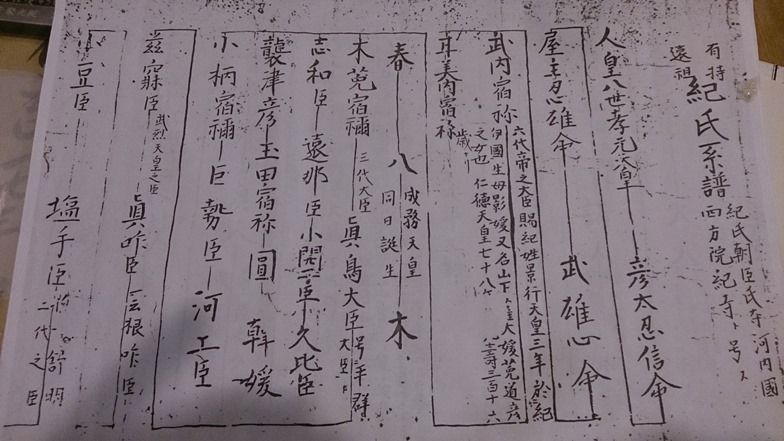 有持
遠祖
紀氏系譜
紀氏朝臣氏寺河内國
西方院紀寺ト号ス
人皇八世孝元天皇―彦太忍信命
屋主忍雄命―武雄心命
武内宿祢
六代帝之大臣賜紀姓景行天皇三年於紀
伊國生母影媛又名山下
之女也仁徳天皇七十八
三百十六
歳
耳美内宿祢
春八木
成務天皇
同日誕生
木莵宿禰
三代大臣
真鳥大臣
号平群
大臣ト
志和臣―遠那臣
久比臣
襲津彦―玉田宿祢―圓韓媛
小柄宿禰―巨勢臣―河上臣
茲寐臣
武烈天皇之臣
真咋臣―玄根咋臣
小豆臣
塩手臣
舒明
二代之臣